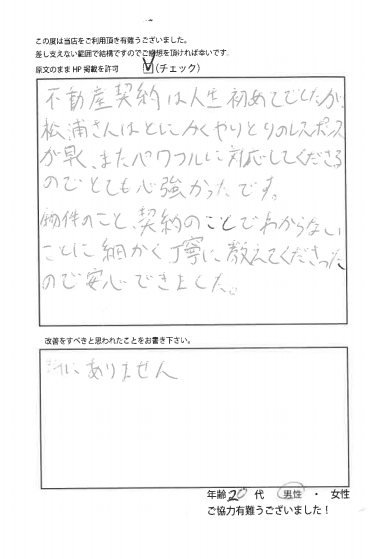 この度は当店をご利用頂き有難うございました。
差し支えない範囲で結構ですのでご感想を頂ければ幸いです。
原文のまま HP 掲載を許可 ☑(チェック)
不動産契約は人生初めてでしたが、
松浦さんはとにかくやりとりのレスポンス
が早く、またパワフルに対応してくださる
のでとても心強かったです。
物件のこと、契約のことでわからない
ことに細かく丁寧に教えてくださった
ので安心できました。
改善をすべきと思われたことをお書き下さい。
特にありません
年齢 20 代 男性 ・ 女性
ご協力有難うございました！